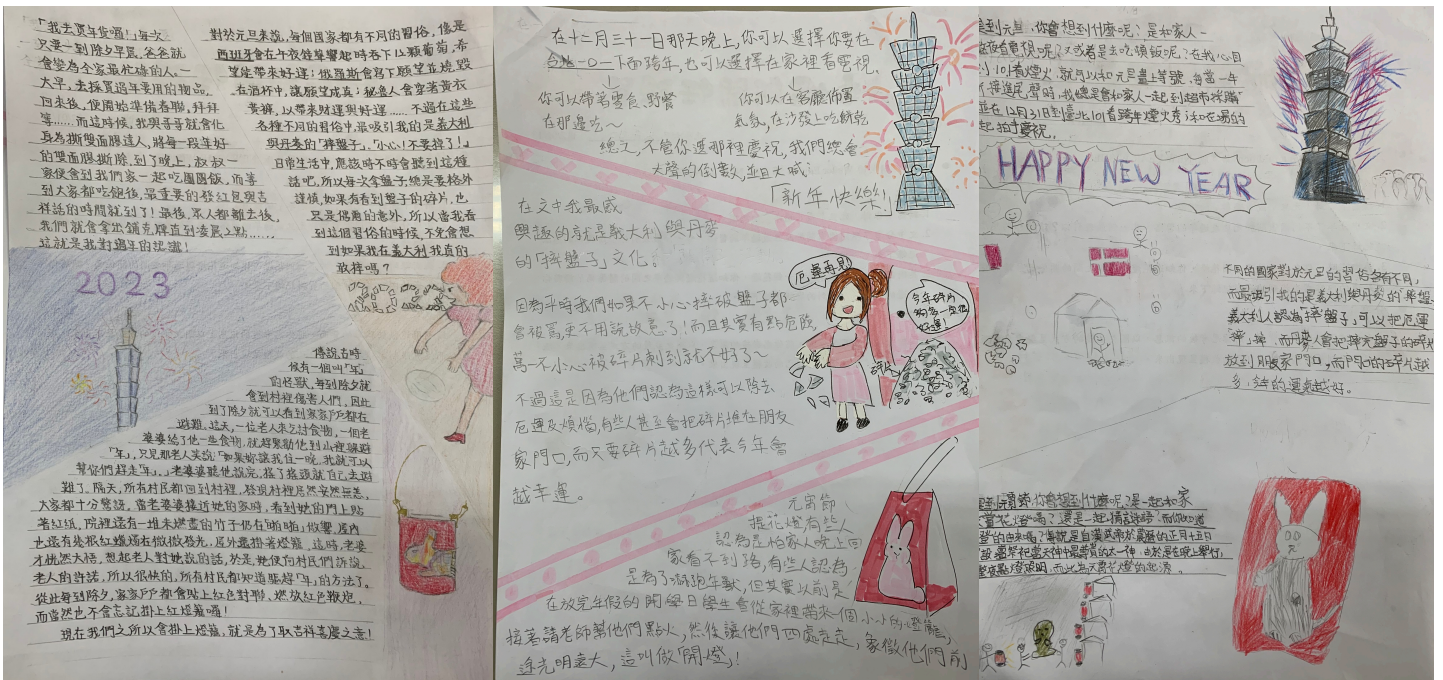 「我去買年貨囉！」每次
只要一到除夕早晨，爸爸就
會變為全家最忙碌的人。一
大早，去採買過年要用的物品，
回來後，便開始準備春聯，拜拜
等……而這時候，我與哥哥就會化
身為撕雙面膠達人，將每一段年好
的雙面膠撕除，到了晚上，叔叔一
家便會到我們家一起吃團圓飯，而等
到大家都吃飽後，最重要的發紅包與吉
祥話的時間就到了！最後，眾人都離去後，
我們就會拿出撲克牌直到凌晨2點……，
這就是我對過年的認識！
對於元旦來說，每個國家都有不同的習俗，像是
西班牙會在午夜鐘聲響起時吞下12顆葡萄，希
望能帶來好運！俄羅斯會寫下願望並燒毀
在酒杯中，讓願望成真；秘魯人會穿著黃衣
黃褲，以帶來財運與好運……不過在這些
各種不同的習俗中，最吸引我的是義大利
與丹麥的「摔盤子」，「小心！不要摔了！」
日常生活中，應該時不時會聽到這種
話吧，所以每次拿盤子，總是要格外
謹慎，如果有看到盤子的碎片，也
只是偶爾的意外，所以當我看
到這個習俗的時候，不免會想
到如果我在義大利，我真的
敢摔嗎？
2023
傳說古時
候有一個叫「年」
的怪獸，每到除夕就
會到村裡傷害人們，因此
到了除夕就可以看到家家戶戶都在
避難。這天，一位老人來乞討食物，一個老
婆婆給了他一些食物，就趕緊勸他到山裡躲避
「年」，只見那老人笑說：「如果妳讓我住一晚，我就可以
幫你們趕走『年』。」老婆婆聽他說完，搖了搖頭就自己去避
難了。隔天，所有村民都回到村裡，發現村裡居然安然無恙，
大家都十分驚訝，當老婆婆接近她的家時，看到她的門上貼
著紅紙，院裡還有一堆未燃盡的竹子仍在「啪啪」做響，屋內
也還有幾根紅蠟燭在微微發光，屋外還掛著燈籠，這時，老婆
才恍然大悟，想起老人對她說的話，於是，她便向村民們訴說
老人的許諾，所以很快的，所有村民都知道驅趕「年」的方法了。
從此每到除夕，家家戶戶都會貼上紅色對聯、燃放紅色鞭炮，
而當然也不會忘記掛上紅燈籠囉！
現在我們之所以會掛上燈籠，就是為了取吉祥喜慶之意！
在十二月三十一日那天晚上，你可以選擇你要在
台北一〇一下面跨年，也可以選擇在家裡看電視。
你可以帶著零食、野餐
在那邊吃～
你可以在客廳佈置
氣氛，在沙發上吃餅乾
總之，不管你選那裡慶祝，我們總會
大聲的倒數，並且大喊：
「新年快樂！」
在文中我最感
興趣的就是義大利與丹麥
的「摔盤子」文化。
厄運再見！
今年碎片
夠多一定很
好運！
因為平時我們如果不小心摔破盤子都
會被罵，更不用說故意了！而且其實有點危險，
萬一不小心被碎片刺到就不好了～
不過這是因為他們認為這樣可以除去
厄運及煩惱，有些人甚至會把碎片堆在朋友
家門口，而只要碎片越多代表今年會
越幸運。
元宵節
提花燈有些人
認為是怕家人晚上回
家看不到路，有些人認為
是為了嚇跑年獸，但其實以前是
在放完年假的開學日學生會從家裡帶來一個小小的燈籠，
接著請老師幫他們點火，然後讓他們四處走走，象徵他們前
途光明遠大，這叫做「開燈」！
到元旦，你會想到什麼呢？是和家人一
夜看電視呢？又或者是去吃頓飯呢？在我心目
101看煙火，就可以和元旦畫上等號，每當一年
接近尾聲時，我總是會和家人一起到超市採購
在12月31日到臺北101看跨年煙火秀，和在場的
起拍手慶祝。
HAPPY NEW YEAR
不同的國家對於元旦的習俗各有不同，
而最吸引我的是義大利與丹麥的「摔盤
義大利人認為「摔盤子」可以把厄運
，而丹麥人會把摔完盤子的碎片
放到朋友家門口，而門口的碎片越
多，的運氣越好。
到元宵節，你會想到什麼呢？是一起和家
賞花燈嗎？還是一起猜謎語？而你知道
的由來嗎？傳說是自漢武帝於農曆的正月十五日
祭祀靈天神中最尊貴的太一神，由於是在晚上舉行，
點燈照明，而此為元宵花燈的起源。